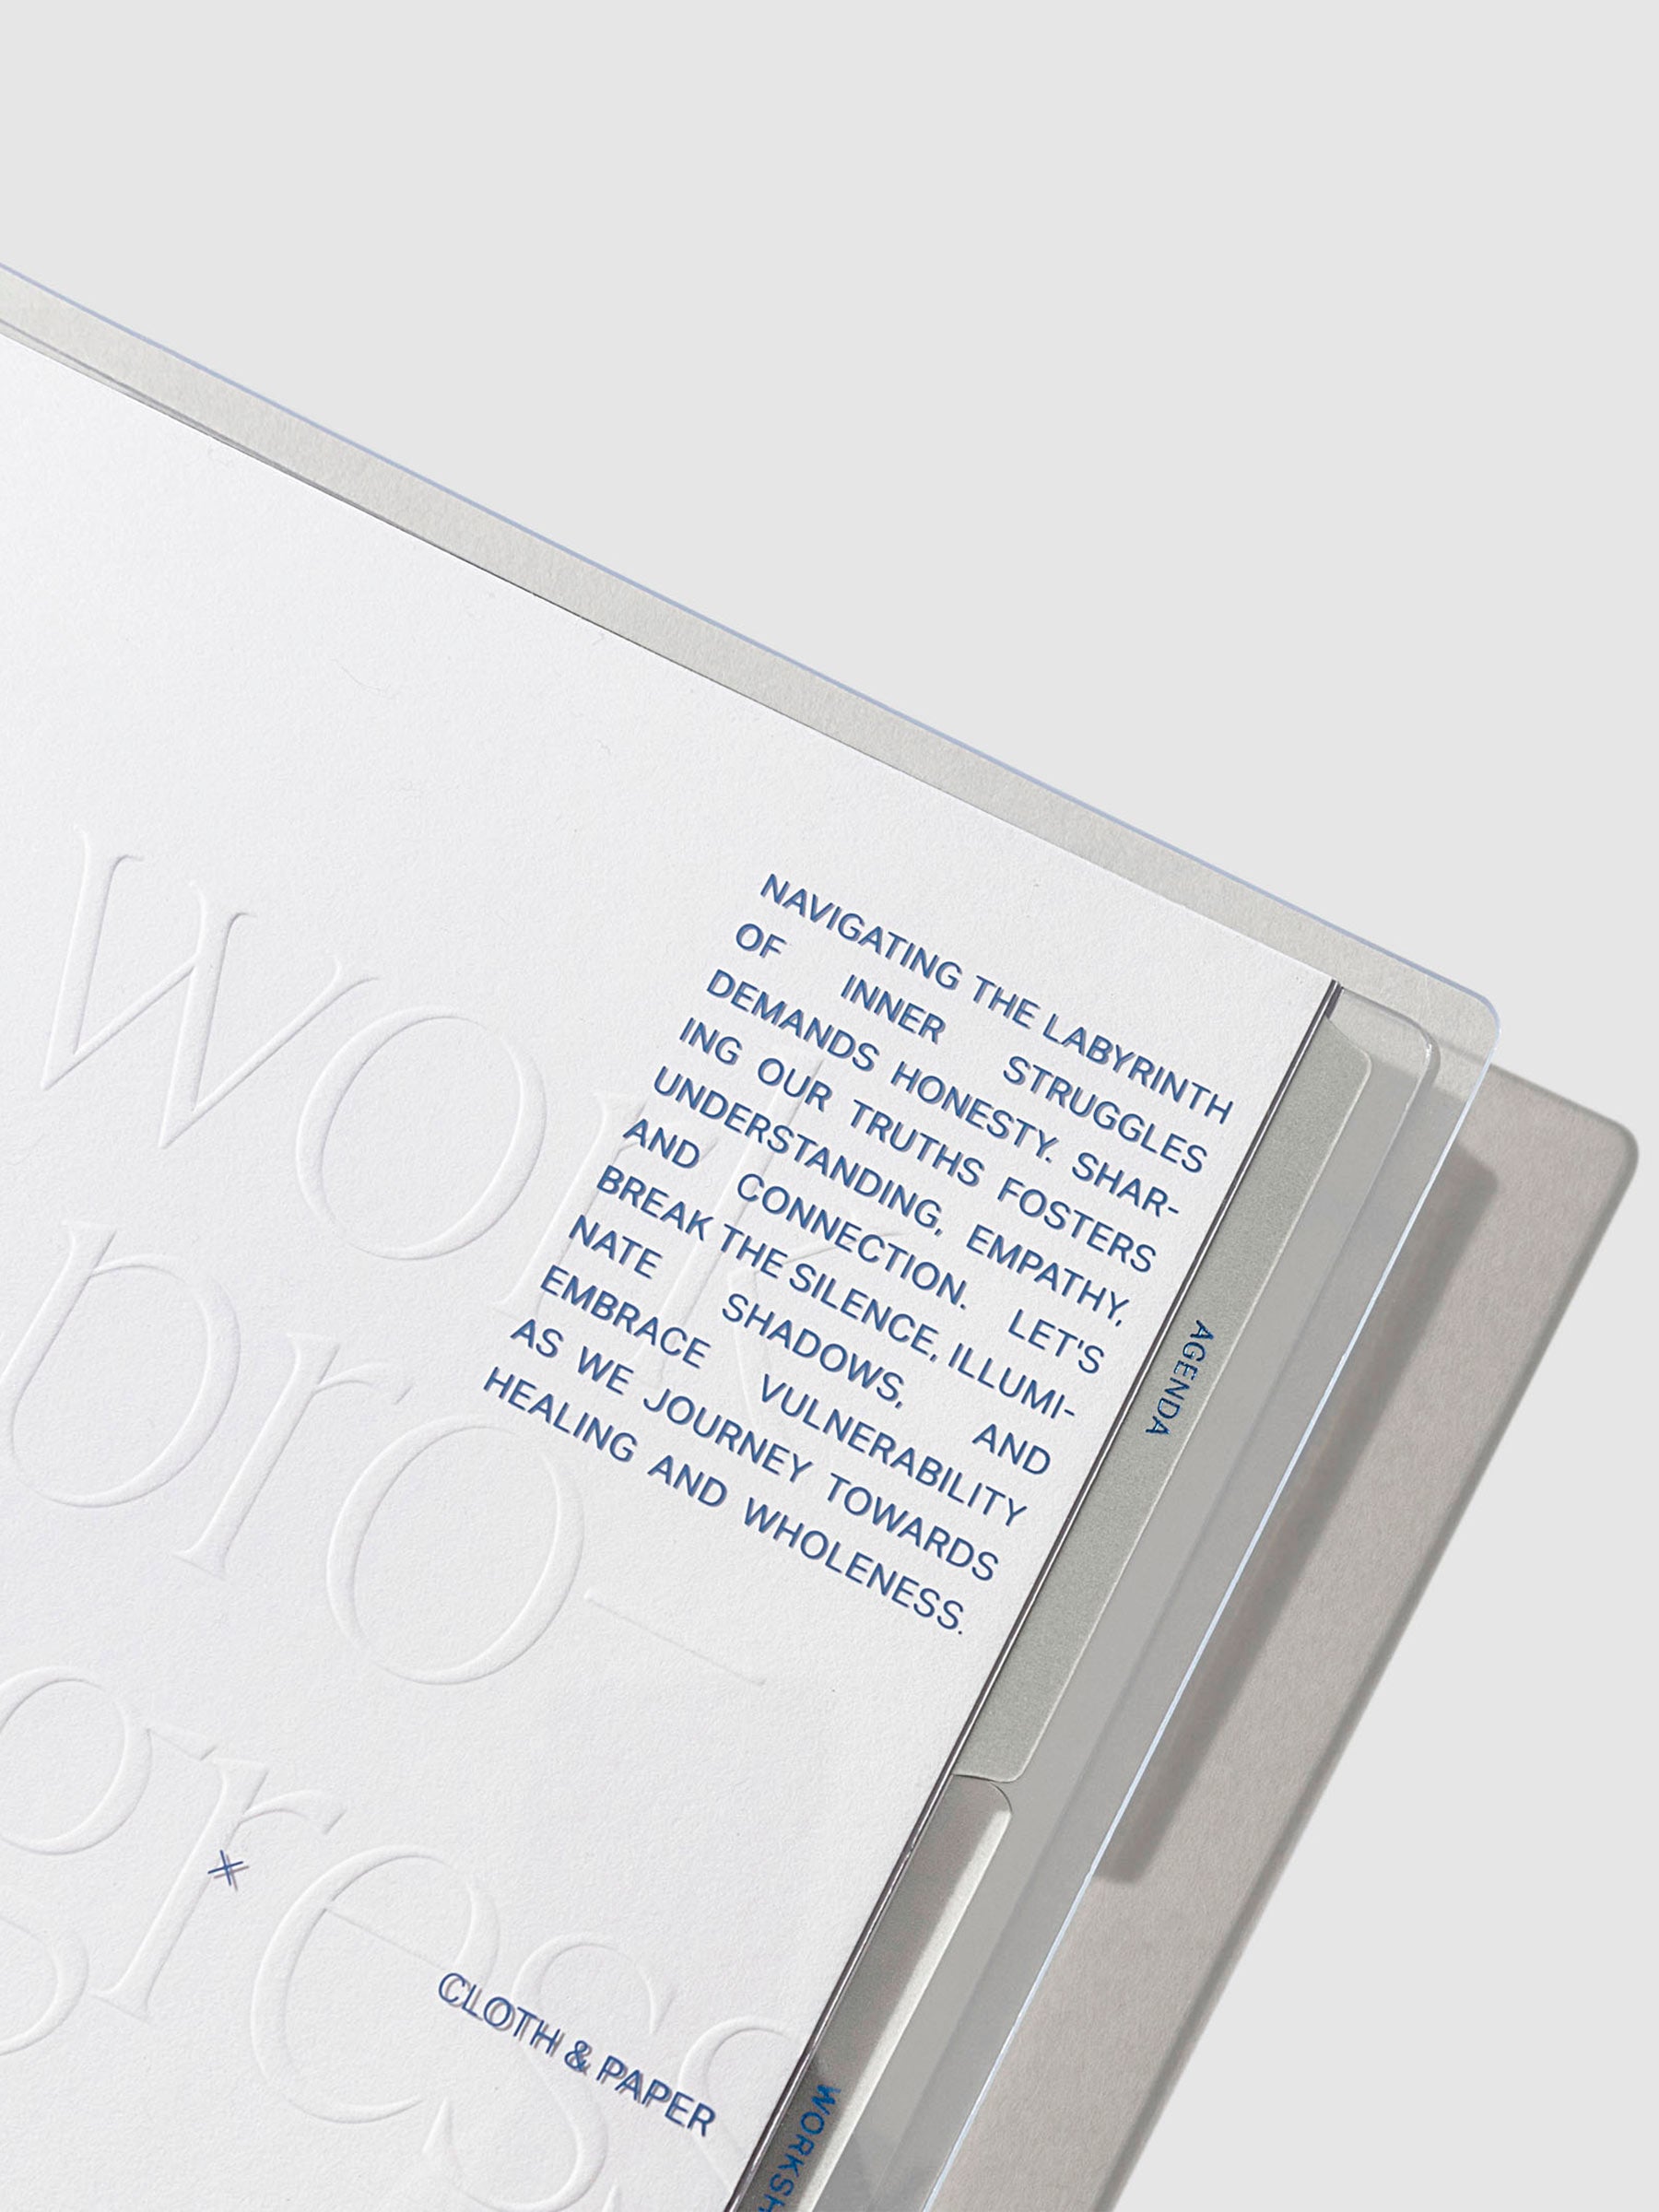 NAVIGATING THE LABYRINTH
OF INNER STRUGGLES
DEMANDS HONESTY. SHAR-
ING OUR TRUTHS FOSTERS
UNDERSTANDING, EMPATHY,
AND CONNECTION. LET'S
BREAK THE SILENCE, ILLUMI-
NATE SHADOWS, AND
EMBRACE VULNERABILITY
AS WE JOURNEY TOWARDS
HEALING AND WHOLENESS.
work
pro-
gress
CLOTH & PAPER
AGENDA